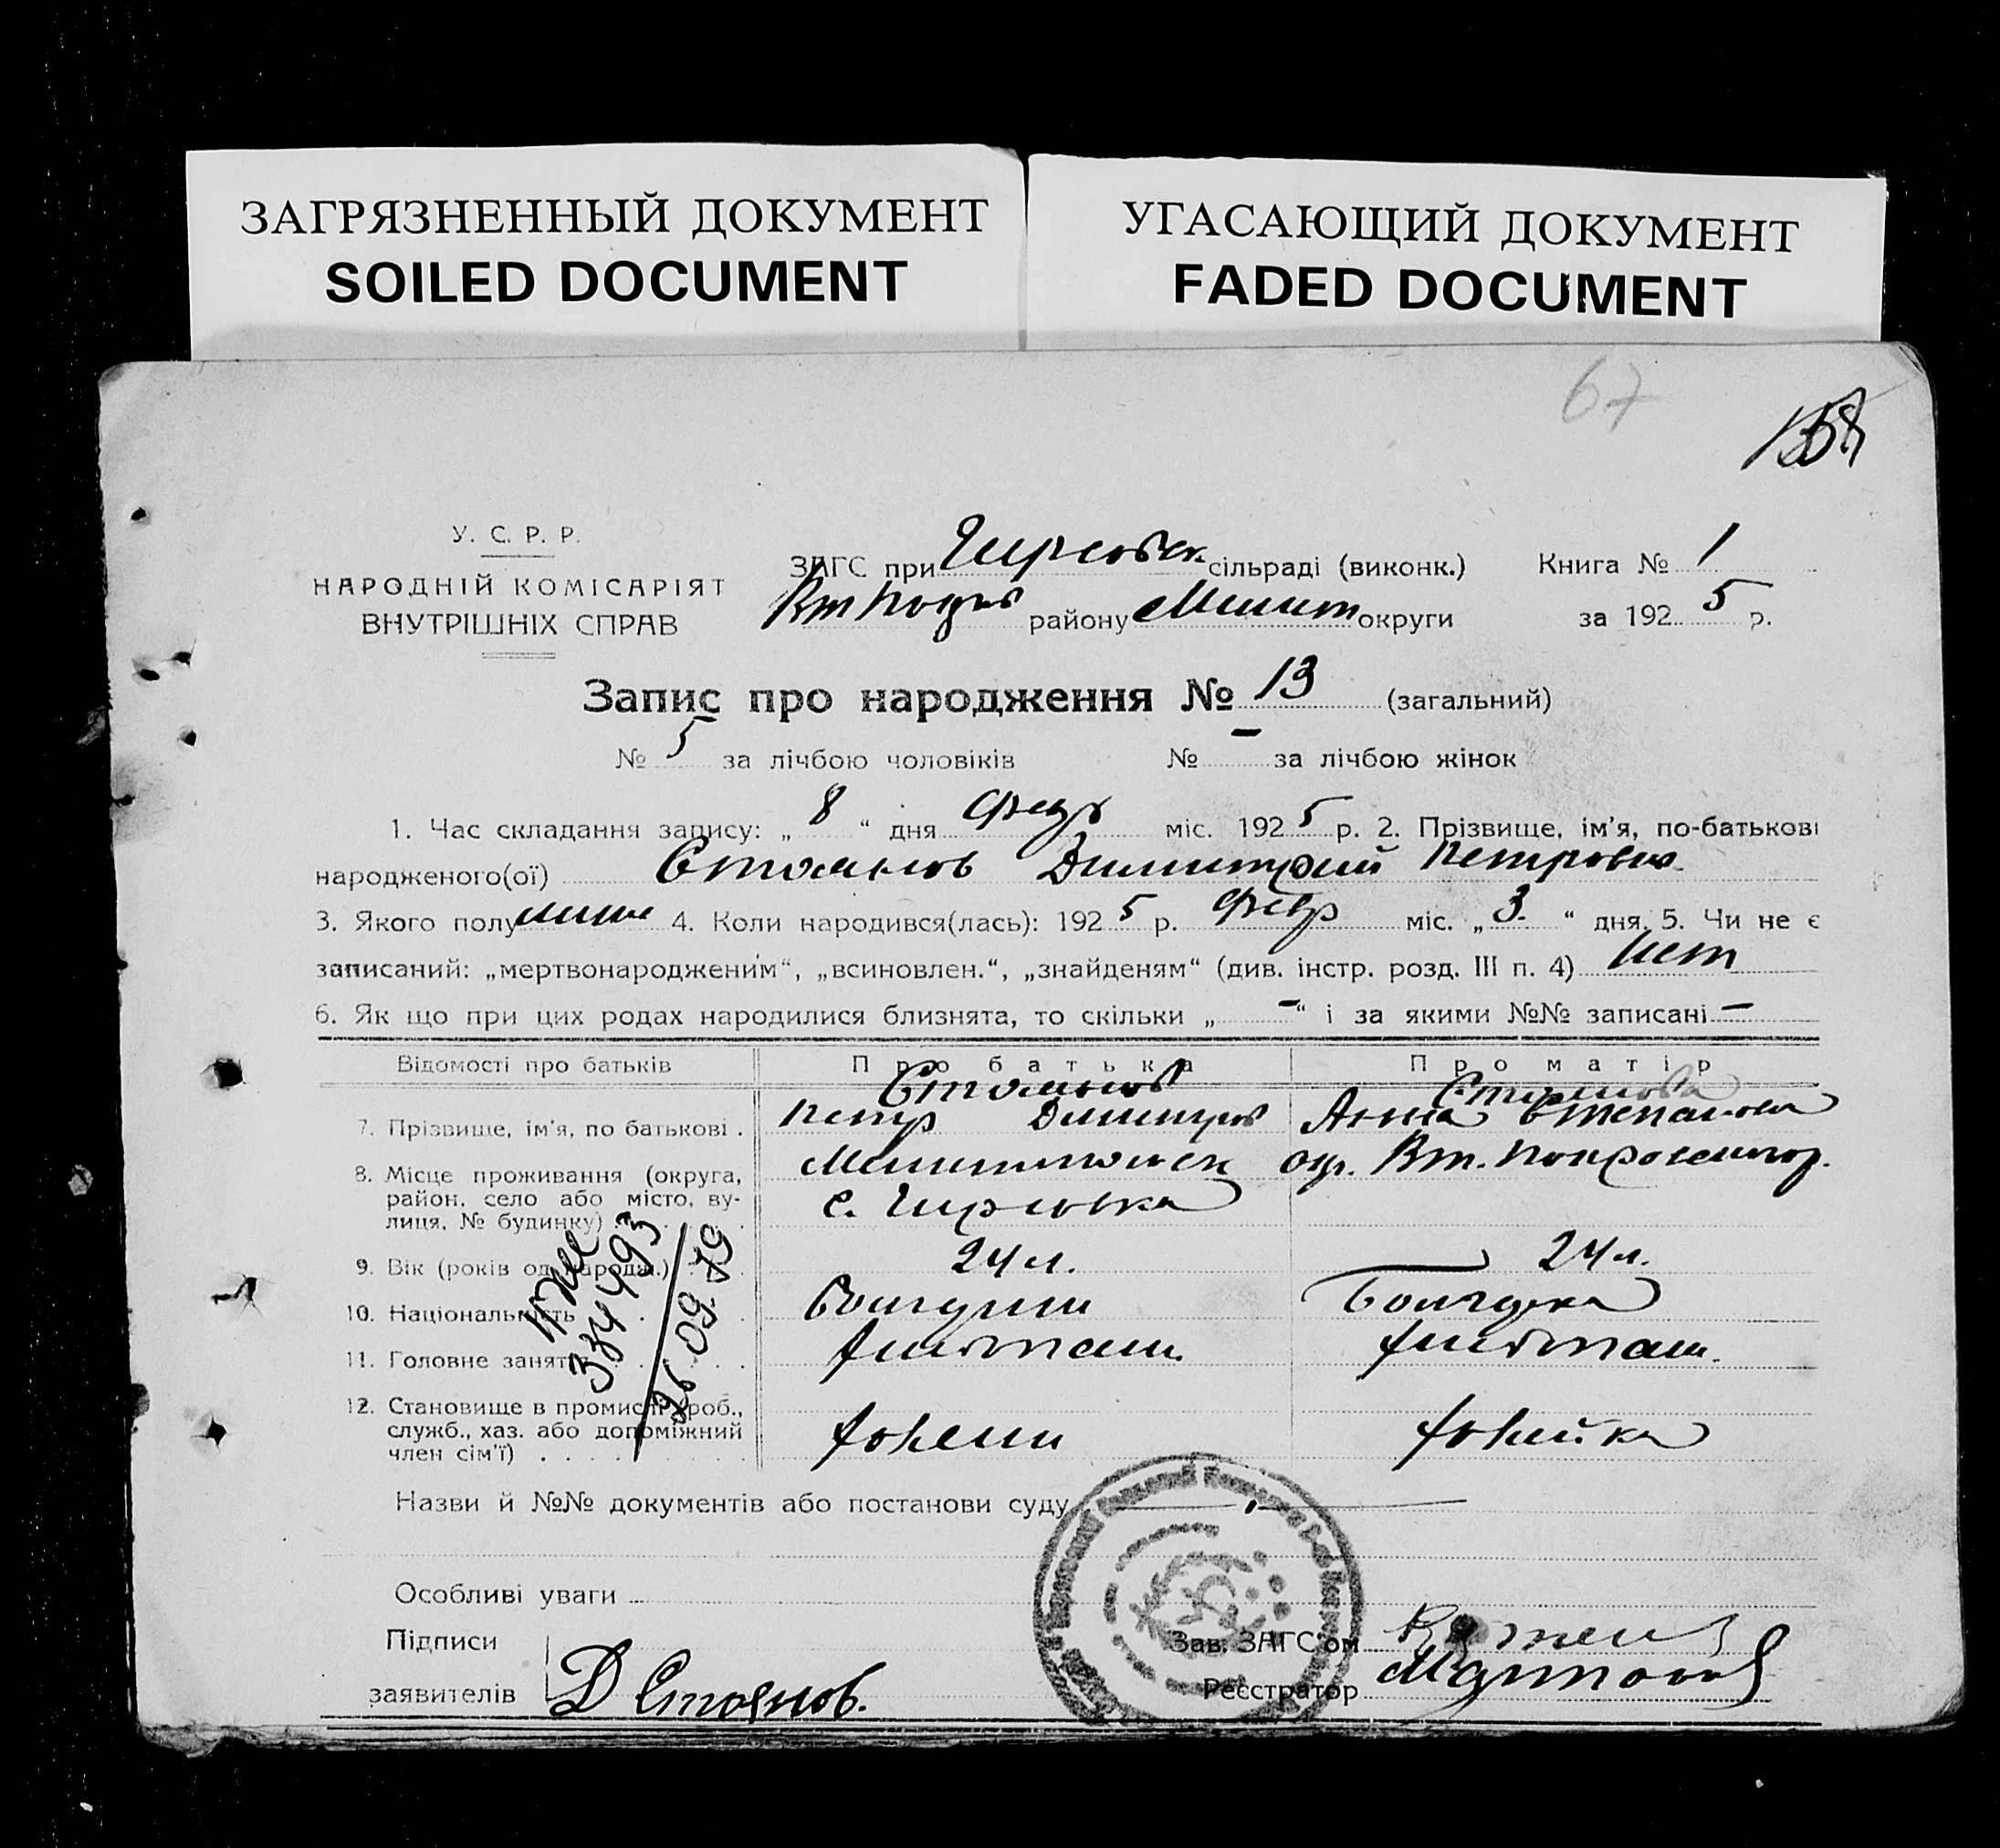 ЗАГРЯЗНЕННЫЙ ДОКУМЕНТ
SOILED DOCUMENT
УГАСАЮЩИЙ ДОКУМЕНТ
FADED DOCUMENT
67
У. С. Р. Р.
НАРОДНІЙ КОМІСАРІЯТ
ВНУТРІШНІХ СПРАВ
ЗАГС при Гирсовск. сільраді (виконк.) Книга № 1
району Мелит округи за 1925 р.
Запис про народження № 13 (загальний)
№ 5 за лічбою чоловіків № – за лічбою жінок
1. Час складання запису: „ 8 “ дня февр міс. 1925 р. 2. Прізвище, ім'я, по-батькові
народженого(ої) Стоянов Димитрий Петрович
3. Якого полу 4. Коли народився(лась): 1925 р. февр міс. „ 3. “ дня. 5. Чи не є
записаний: „мертвонародженим“, „всиновлен.“, „знайденям“ (див. інстр. розд. III п. 4) нет
6. Як що при цих родах народилися близнята, то скільки „ – “ і за якими №№ записані –
Відомості про батьків Про батька Про матір
Стоянов Стоянова
7. Прізвище, ім'я, по батькові . Петр Димитров Анна Степановна
8. Місце проживання (округа, район, село або місто, вулиця, № будинку) Мелитопольск окр. Вт. Покровск
с. Гирсовка
9. Вік (років од народж.) 24 л. 24 л.
10. Національність Болгарин Болгарка
11. Головне заняття хлебопаш. хлебопаш.
12. Становище в промислі (роб., служб., хаз. або допоміжний член сім'ї) хозяин хозяйка
334493
26.09.79
Назви й №№ документів або постанови суду
Особливі уваги
Підписи
заявителів Д Стоянов.
Зав. ЗАГС'ом
Реєстратор